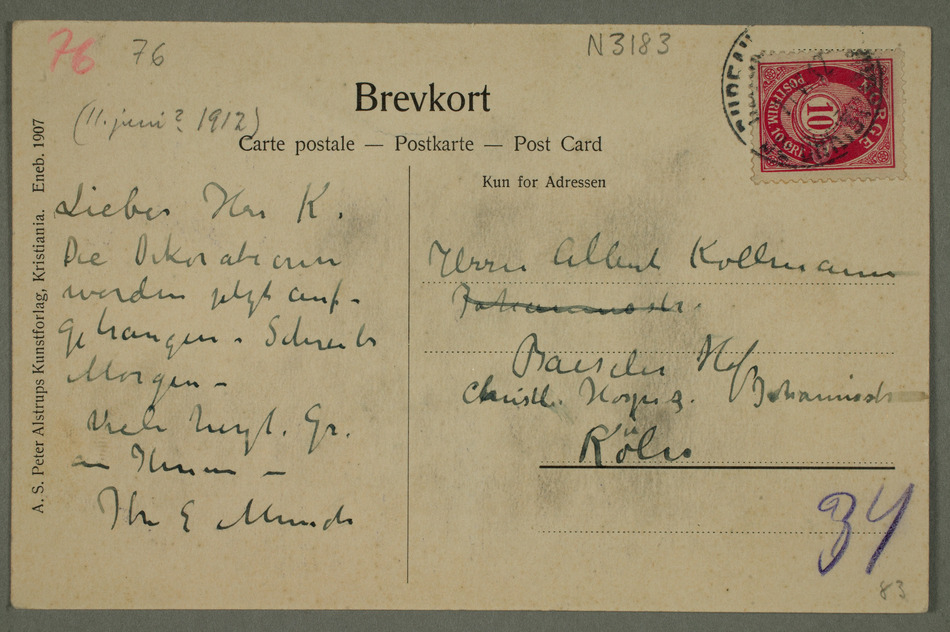 76
76
N3183
(11. juni? 1912)
Brevkort
Carte postale — Postkarte — Post Card
Kun for Adressen
NORGE
POSTFRIM. 10 ØRE
10
A. S. Peter Alstrups Kunstforlag, Kristiania. Eneb. 1907
Lieber Herr K.
Die Dekorationen
werden jetzt auf-
gehangen. Schreibe
Morgen –
Viele herzl. Gr.
an Ihnen –
Ihr E Munch
Herrn Albert Kollmann
Johannesstr.
Baseler Hof
Christl. Hospiz. Johannisstr
Köln
34
83